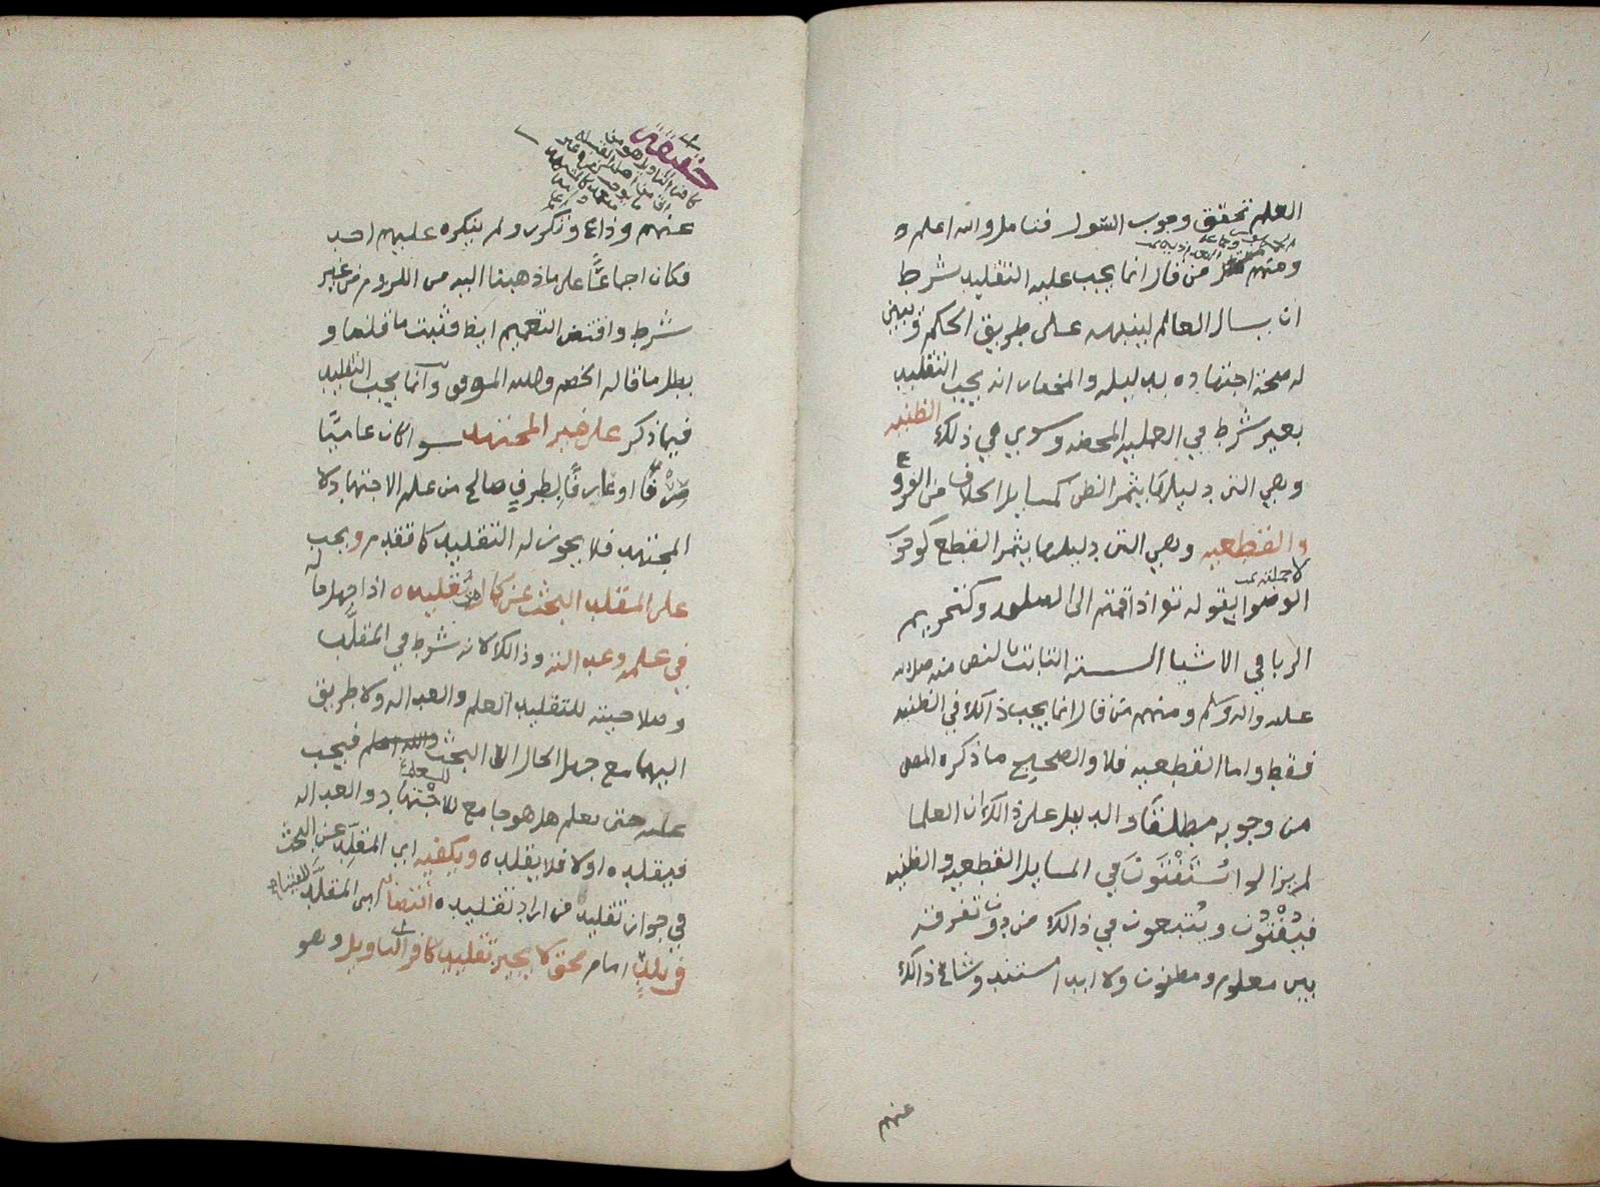 العلم تحقق وجوب السول فتامل والله اعلم و
ومنهم من قال انما يجب عليه التقليد شرط
ان يسال العالم لينبهه على طريق الحكم ويبين
له صحة اجتهاده بدليله والمختار انه يجب التقليد
بغير شرط في العمليه المحضه وسوى في ذلك الظنيه
وهي التي دليلها يثمر الظن كمسايل الخلاف من الفروع
والقطعيه وهي التي دليلها يثمر القطع كوجوب
الوضوا لقوله تع اذا قمتم الى الصلوه وكتحريم
الربا في الاشيا السته الثابت بالنص منه صلى الله
عليه واله وسلم ومنهم من قال انما يجب ذالك في الظنيه
فقط واما القطعيه فلا والصحيح ما ذكره المص
من وجوبه مطلقا والدليل على ذالك ان العلما
لم يزالوا يُسْتَفْتَوْنَ في المسايل القطعيه والظنيه
فيُفْتُون ويُتبعون في ذالك من دون تفرقة
بين معلوم ومظنون ولا ابدا مستند وشاع ذالك
عنهم
حقيقة
عنهم وذاع وتكرر ولم ينكره عليهم احد
فكان اجماعًا على ما ذهبنا اليه من اللزوم من غير
شرط واقتضى التعميم ايضا فثبت ما قلنا و
بطل ما قاله الخصم والله الموفق وآنما يجب التقليد
فيما ذكر على غير المجتهد سوا كان عاميًّا
صرفًا او عارفًا بطرف صالح من علم الاجتهاد لا
المجتهد فلا يجوز له التقليد كما تقدم ويجب
على المقلد البحث عن كمال من يُقلده اذا جهل حاله
في علمه وعدالته وذالك لانه شرط في المقلَّد
وصلاحيته للتقليد العلم والعداله ولا طريق
اليهما مع جهل الحال الا البحث فيجب
عليه حتى يعلم هل هو جامع للاجتهاد والعداله
فيقلده اولا فلا يقلده ويكفيه اى المقلِّد عن البحث
في جواز تقليد من اراد تقليده انتصابُه اى المقلَّد للفتيا
في بلدٍ امام محق لا يجيز تقليد كافر التاويل وهو